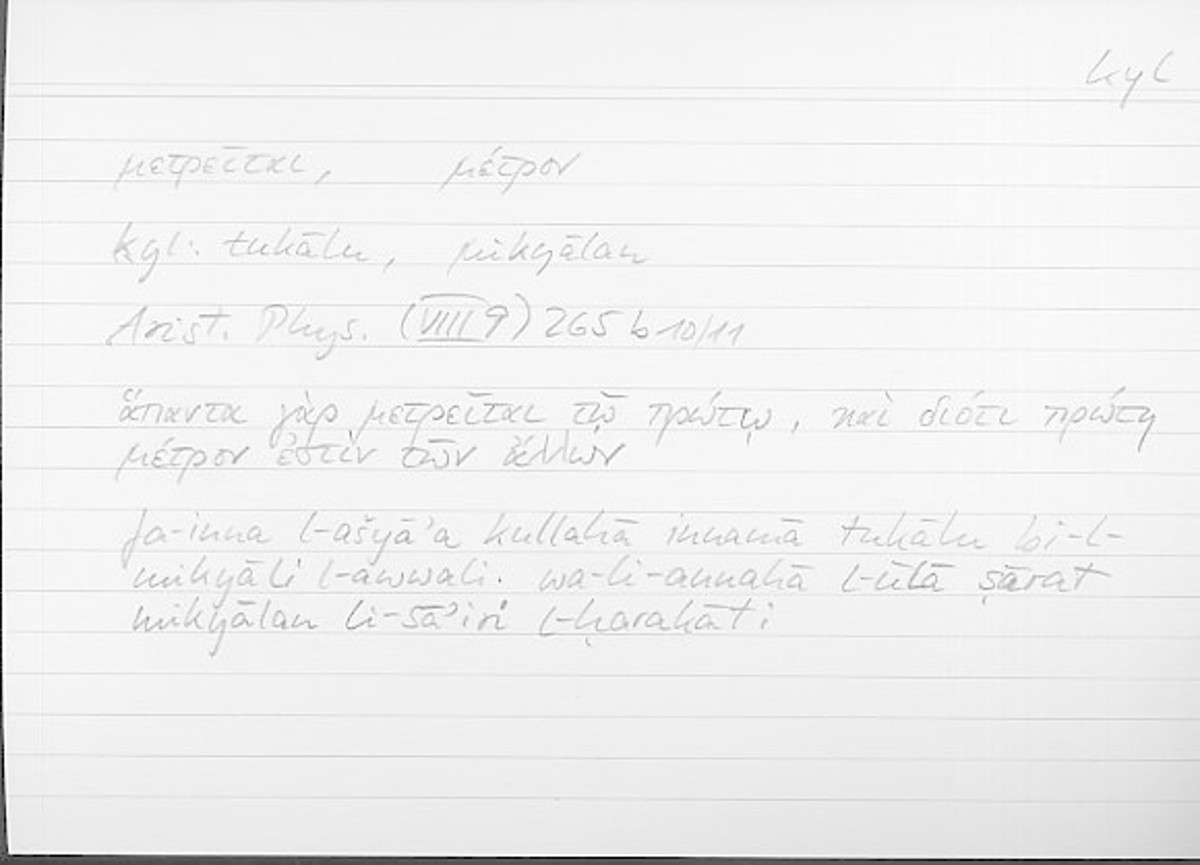 kyl
μετρεῖται, μέτρον
kyl: tukālu, mikyālan
Arist. Phys. (VIII 9) 265 b 10/11
ἅπαντα γὰρ μετρεῖται τῷ πρώτῳ, καὶ διότι πρώτη
μέτρον ἐστὶν τῶν ἄλλων
fa-inna l-ašyāʾa kullahā innamā tukālu bi-l-
mikyāli l-awwali. wa-li-annahā l-ūlā ṣārat
mikyālan li-sāʾiri l-ḥarakāti